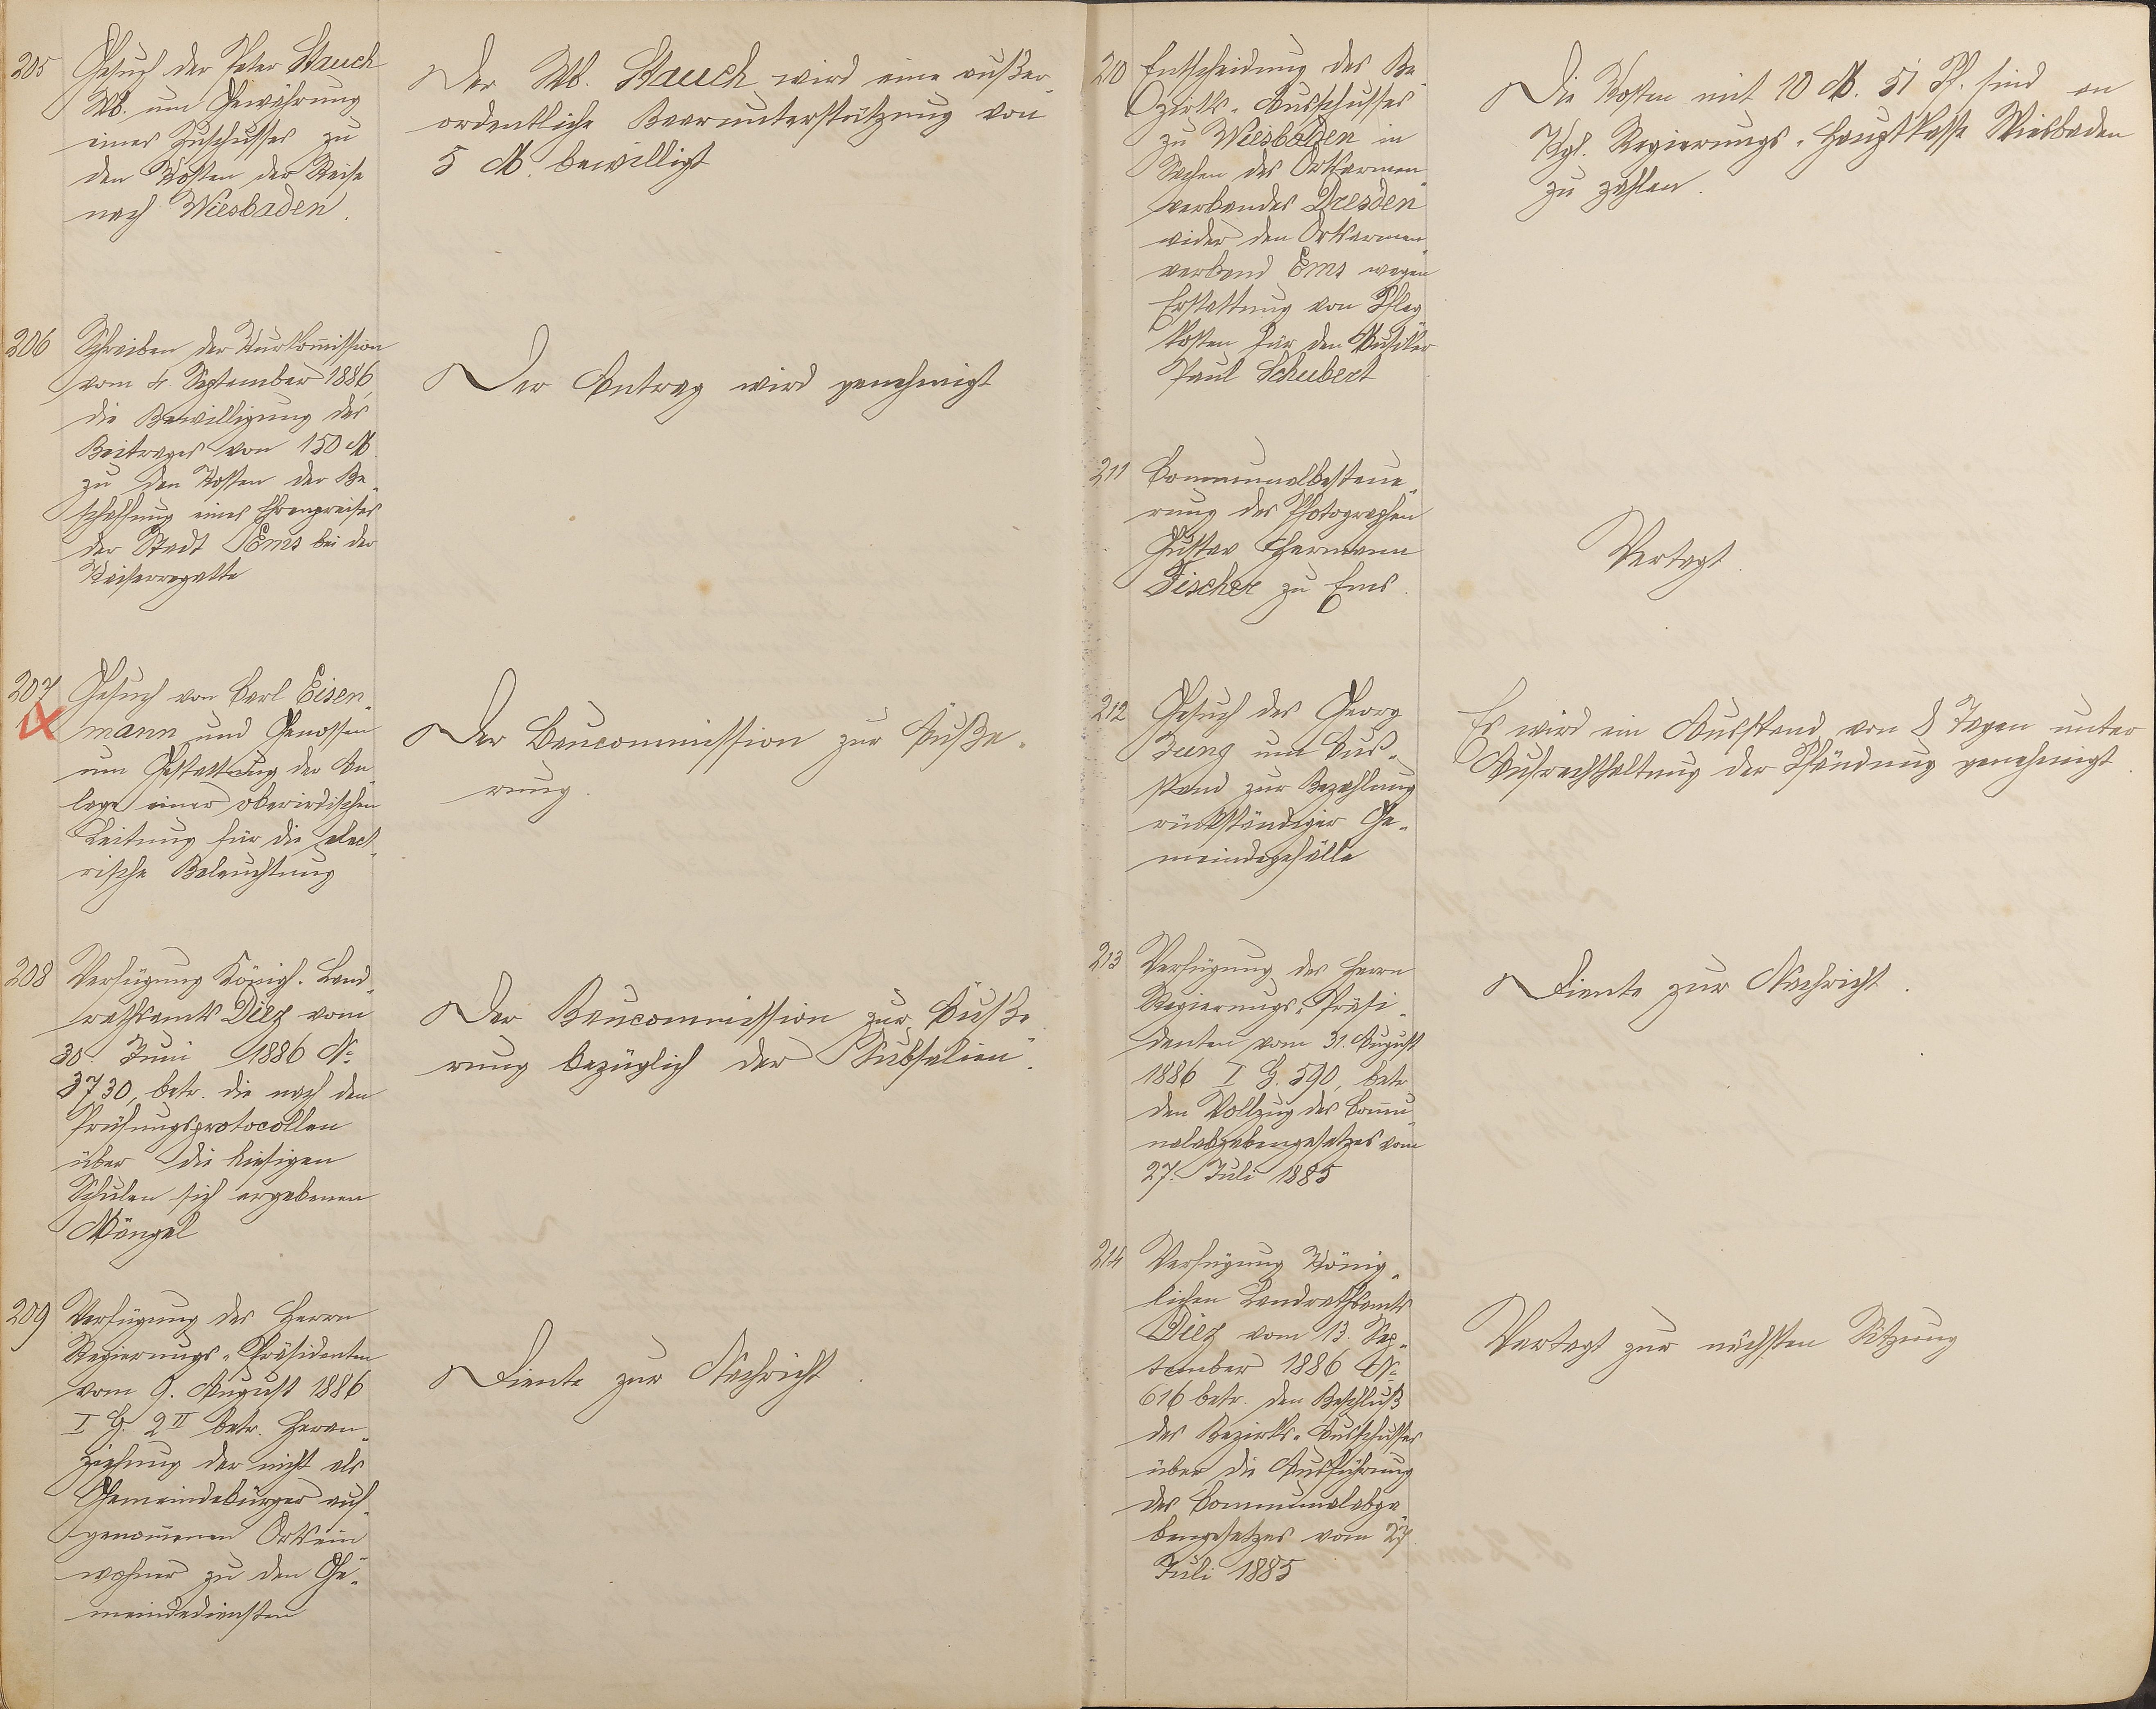 205 Gesuch der Peter Stauch
Wb. um Gewährung
eines Zuschusses zu
den Kosten der Reise
nach Wiesbaden.
Der Wb. Stauch wird eine außer-
ordentliche Baarunterstützung von
5 M. bewilligt
206 Schreiben der Kurkom̅ission
vom 4. September 1886,
die Bewilligung des
Beitrages von 150 M
zu den Kosten der Be-
schaffung eines Ehrenpreises
der Stadt Ems bei der
Kaiserregatte
Der Antrag wird genehmigt
207 Gesuch von Carl Eisen-
mann und Genossen
um Gestattung der An-
lage einer oberirdischen
Leitung für die elect-
rische Beleuchtung
Der Baucommission zur Äuße-
rung.
208 Verfügung Königl. Land-
rathsamts Diez vom
30. Juni 1886 No
3730, betr. die nach den
Prüfungsprotocollen
über die hiesigen
Schulen sich ergebenen
Mängel
Der Baucommission zur Äuße-
rung bezüglich der Subselien.
209 Verfügung des Herrn
Regierungs-Präsidenten
vom 9. August 1886
I G. 2 II betr. Heran-
ziehung der nicht als
Gemeindebürger auf-
genom̅enen Ortsein-
wohner zu den Ge-
meindediensten
Diente zur Nachricht.
210 Entscheidung des Be-
zirks-Ausschusses
zu Wiesbaden in
Sachen des Ortsarmen-
verbandes Dresden
wider den Ortsarmen-
verband Ems wegen
Erstattung von Pfleg-
kosten für den Musiker
Paul Schubert
Die Kosten mit 10 M. 51 Pf. sind an
Kgl. Regierungs-Hauptkasse Wiesbaden
zu zahlen.
211 Communalbesteue-
rung des Photographen
Gustav Hermann
Fischer zu Ems.
Vertagt.
212 Gesuch des Georg
Jung um Aus-
stand zur Bezahlung
rückständiger Ge-
meindegefälle
Es wird ein Ausstand von 8 Tagen unter
Aufrechthaltung der Pfändung genehmigt.
213 Verfügung des Herrn
Regierungs-Präsi-
denten vom 31. August
1886 I G. 590, betr.
den Vollzug des Com̅u-
nalabgabengesetzes vom
27. Juli 1885
Diente zur Nachricht.
214 Verfügung König-
lichen Landrathsamts
Diez vom 13. Sep-
tember 1886 No
616 betr. den Beschluß
des Bezirks-Ausschusses
über die Ausführung
des Communalabga-
bengesetzes vom 27.
Juli 1885
Vertagt zur nächsten Sitzung